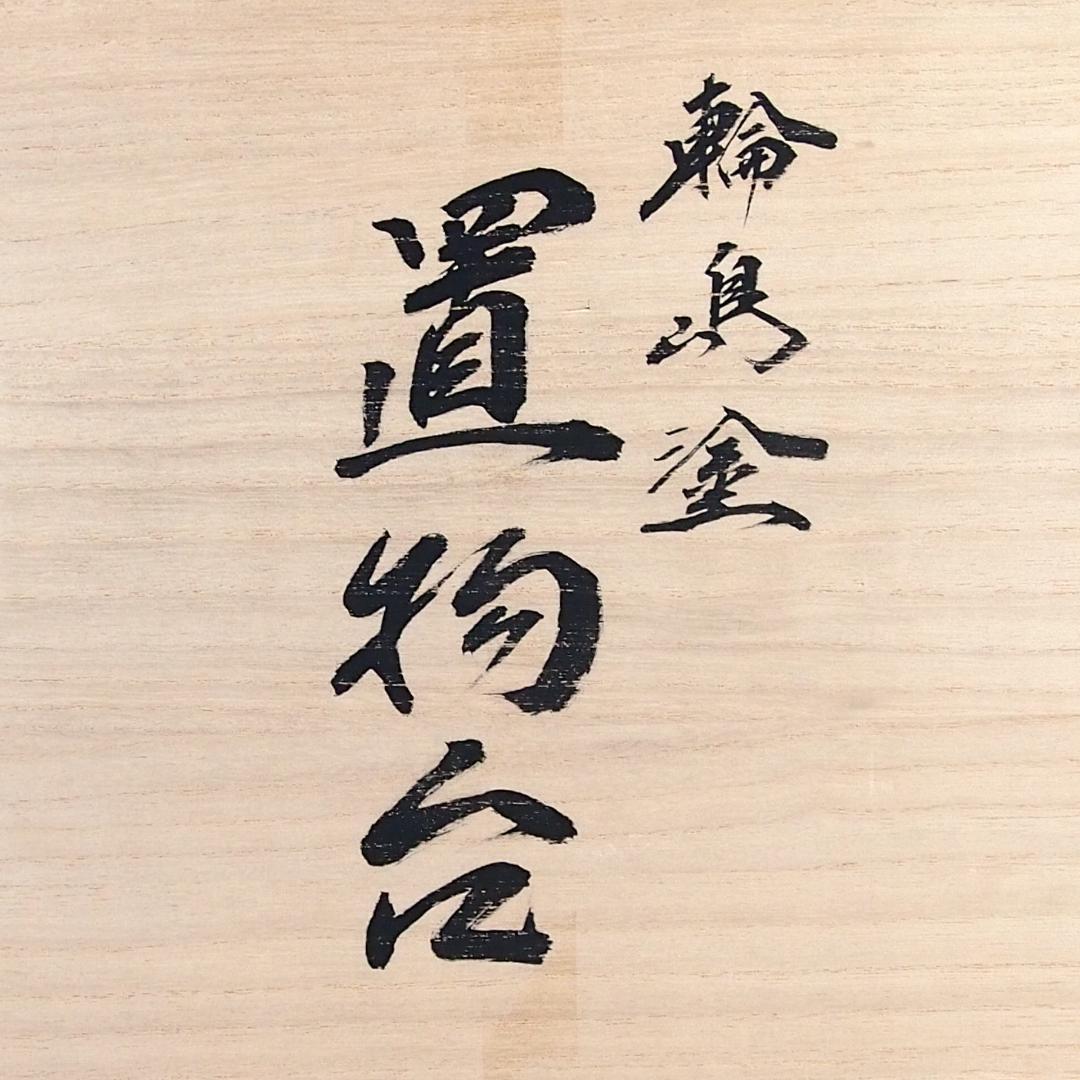 輪島塗
置物台